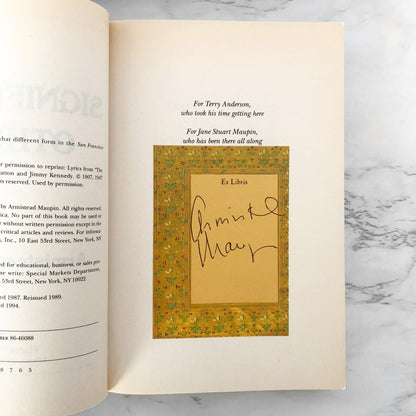 SIGNIF
what different form in the San Francisco
r permission to reprint: Lyrics from "The
ation and Jimmy Kennedy. © 1907, 1947
ts reserved. Used by permission.
by Armistead Maupin. All rights reserved.
ica. No part of this book may be used or
without written permission except in the
critical articles and reviews. For informa
s, Inc., 10 East 53rd Street, New York, NY
ed for educational, business, or sales pro
se write: Special Markets Department,
53rd Street, New York, NY 10022.
d 1987. Reissued 1989.
d 1994.
BER 86-46088
8 7 6 5
For Terry Anderson,
who took his time getting here
For Jane Stuart Maupin,
who has been there all along
Ex Libris
Armistead
Maupin